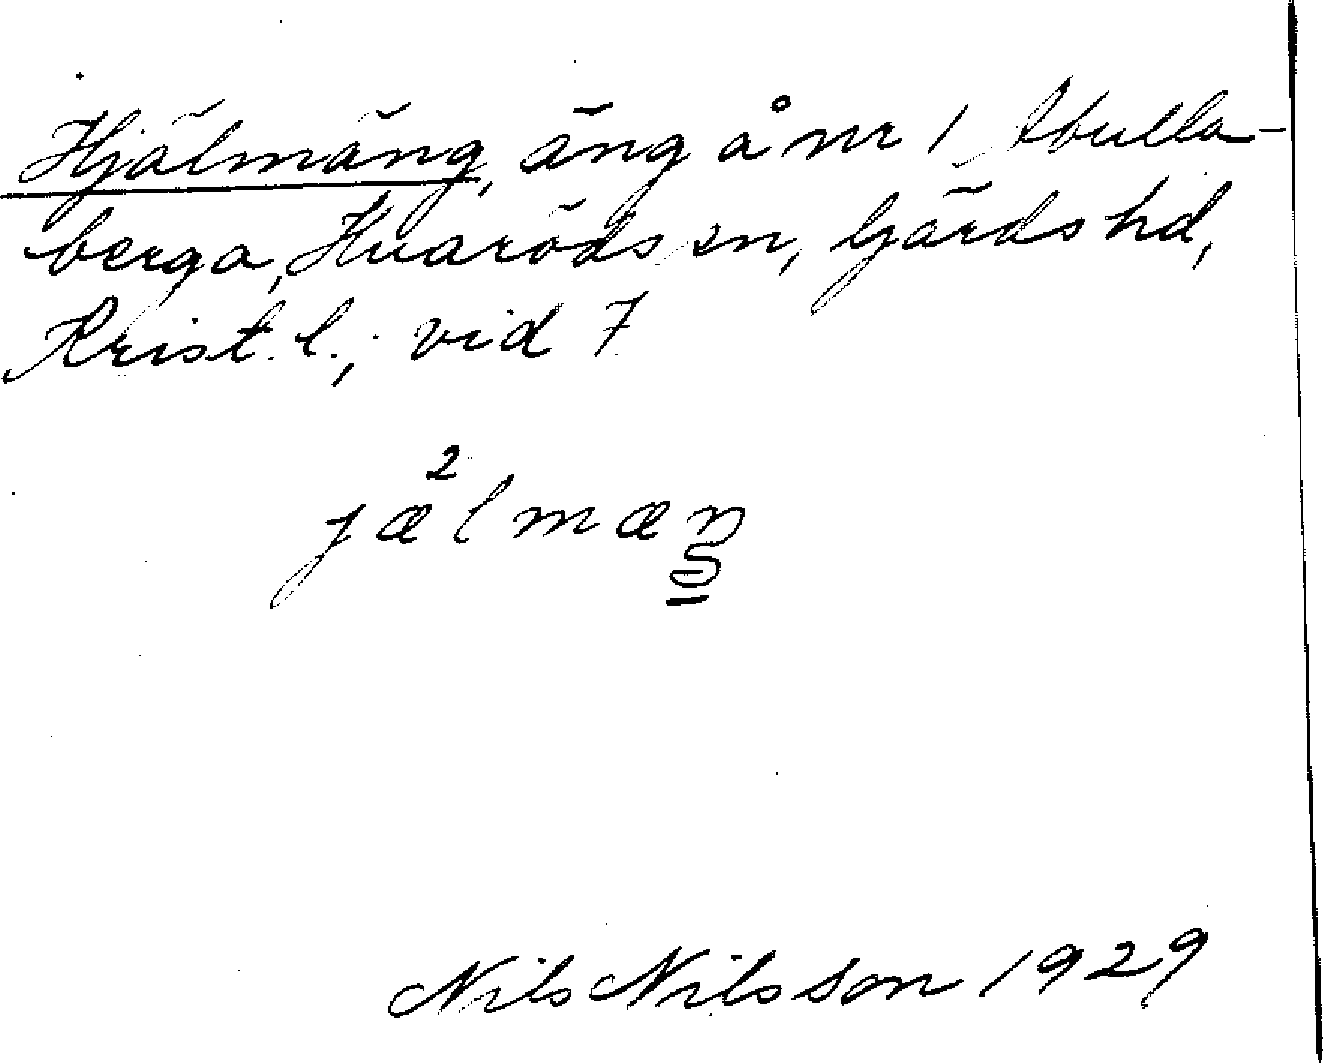 Hjälmäng, äng å nr 1 Abulla-
berga, Huaröds sn, Gärds hd,
Krist. l., vid 7
jæ²lmæŋ
Nils Nilsson 1929